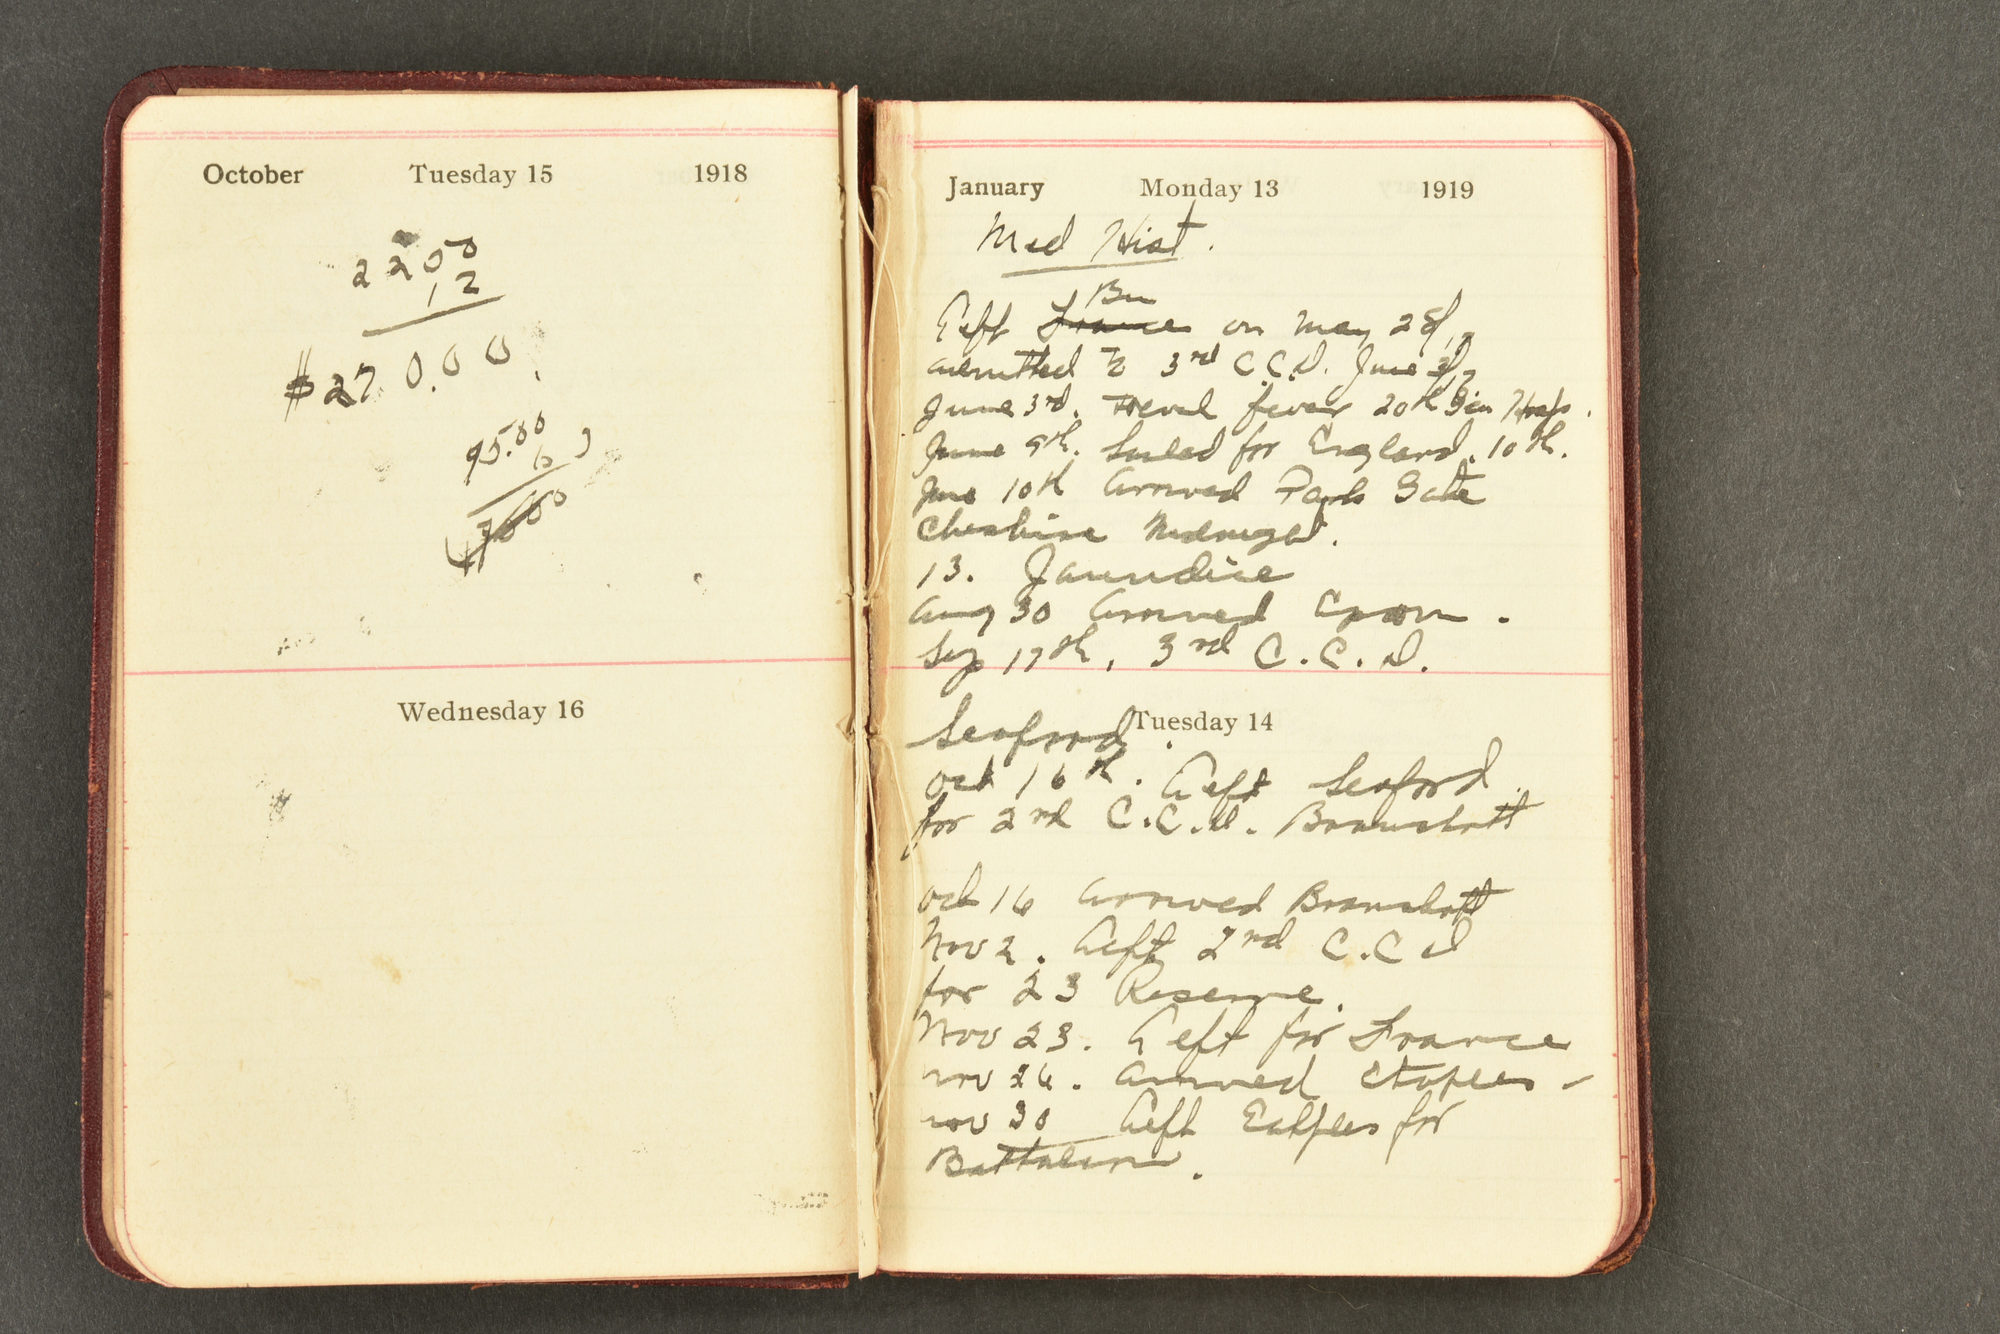 October Tuesday 15 1918
2200
12
$270.00
95.00
6
Wednesday 16
January Monday 13 1919
Med Hist.
Bn
Left France on May 28,
admitted to 3rd C.C.S. June
June 3rd. fever 20th Gen Hosp.
June 9th. Sailed for England. 10th.
June 10th arrived Park Gate
Cheshire Midnight.
13. Jaundice
Aug 30 arrived Epsom.
Sep 17th, 3rd C.C.D.
Seaford.
Tuesday 14
Oct 16th. Left Seaford
for 2nd C.C.D. Bramshott
Oct 16 arrived Bramshott
Nov 2. Left 2nd C.C.D
for 23 Reserve.
Nov 23. Left for France
nov 26. arrived Etaples -
nov 30 Left for
Battalion.